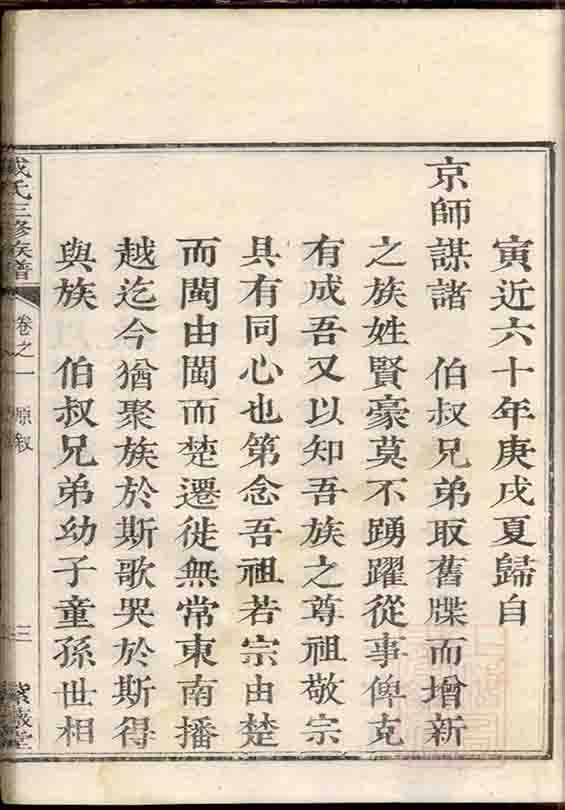 寅近六十年庚戌夏歸自
京師謀諸　伯叔兄弟取舊牒而增新
之族姓賢豪莫不踴躍從事俾克
有成吾又以知吾族之尊祖敬宗
具有同心也第念吾祖若宗由楚
而閩由閩而楚遷徙無常東南播
越迄今猶聚族於斯歌哭於斯得
與族　伯叔兄弟幼子童孫世相
成氏三修族譜　卷之一　原叙　三